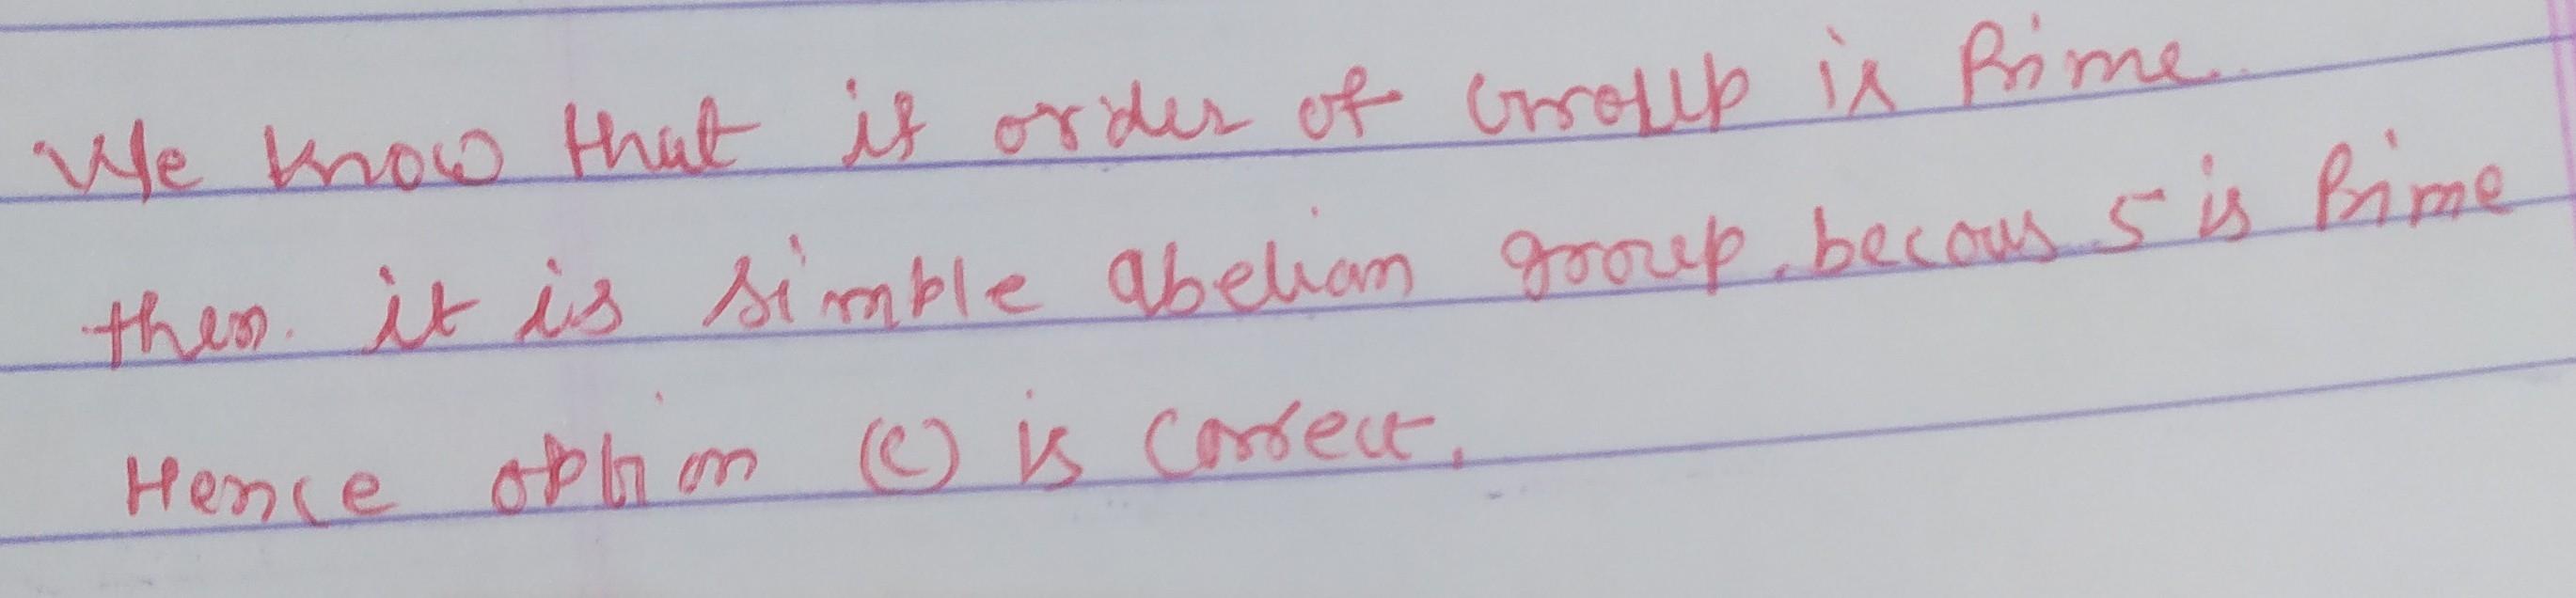 We know that if order of Group is Prime.
then. it is simple abelian group. becaus 5 is Prime
Hence option (c) is correct.